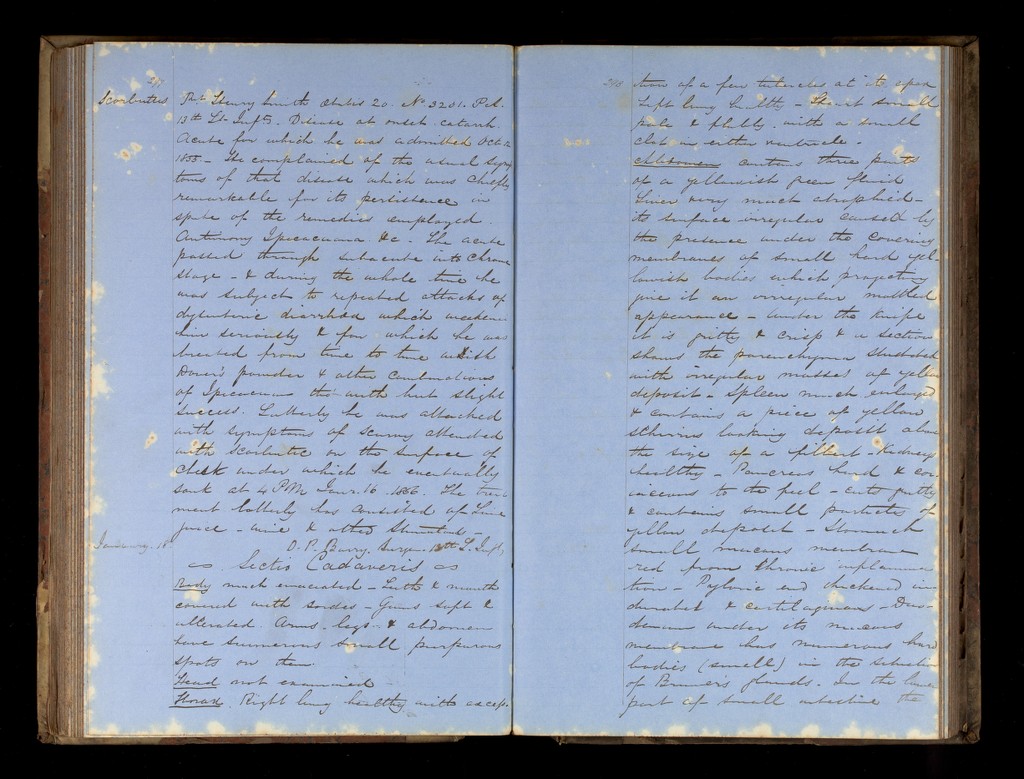 Scorbutus
Pat. Henry Smith Ætatis 20. No 3201. Pvt.
13th Lt. Infty. Disease at onset catarrh.
Acute for which he was admitted Oct. 2
1855 - He complained of the usual symp
toms of that disease which was chiefly
remarkable for its persistence in
spite of the remedies employed.
Antimony Ipecacuana &c. The acute
passed through subacute into chronic
stage - & during the whole time he
was subject to repeated attacks of
dysenteric diarrhœa which weakened
him seriously & for which he was
treated from time to time with
Dover's powder & other combinations
of Ipecacuan tho' with but slight
success. Latterly he was attacked
with symptoms of scurvy attended
with scorbutic on the surface of
cheek under which he eventually
sank at 4 PM Janr. 16. 1856. The treat
ment latterly has consisted of Lime
juice - wine & other stimulants.
D. P. Barry, Surgn. 13th L. Infty
January 16
Sectio Cadaveris
Body much emaciated - Teeth & mouth
covered with sordes - Gums soft &
ulcerated. Arms - legs - & abdomen
have numerous small purpurous
spots on them
Head not examined
Thorax. Right lung healthy with excep-
tion of a few tubercles at its apex
Left lung healthy - Heart small
pale & flabby. with a small
clot in either ventricle -
Abdomen contains three pints
of a yellowish green fluid
Liver very much atrophied -
its surface irregular caused by
the presence under the covering
membranes of small hard yel-
lowish bodies which projecting
give it an irregular mottled
appearance - Under the knife
it is gritty & crisp & a section
shows the parenchyma studded
with irregular masses of yellow
deposit - Spleen much enlarged
& contains a piece of yellow
scirrhus looking deposit about
the size of a filbert - Kidneys
healthy - Pancreas hard &
to the feel - cuts gritty
& contains small particles of
yellow deposit - Stomach
small mucous membrane
red from chronic inflamma
tion - Pyloric end thickened in
durated & cartilaginous - Duo-
denum under its mucous
membrane has numerous hard
bodies (small) in the situation
of Brunner's glands. In the lower
part of small intestine the